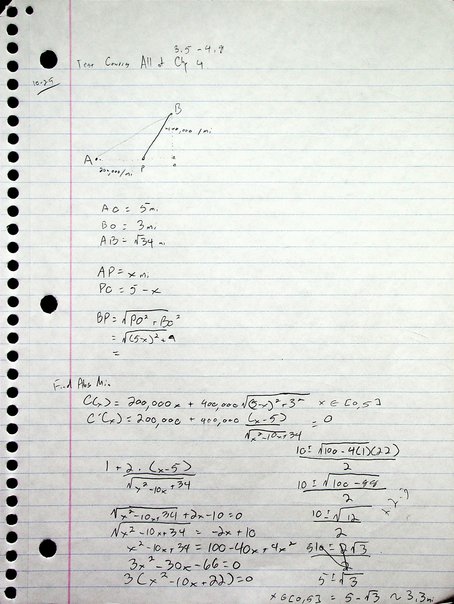 3.5 - 4.9
Test Covers All of Ch 4
10.29
B
400,000/mi
A
200,000/mi
P
O
AO = 5 mi
BO = 3 mi
AB = √34 mi
AP = x mi
PO = 5 - x
BP = √PO² + BO²
= √(5-x)² + 9
=
Find Abs Min
C(x) = 200,000x + 400,000√(5-x)² + 3² x ∈ [0,5]
C'(x) = 200,000 + 400,000 (x-5) / √x²-10x+34 = 0
1 + 2 · (x-5) / √x²-10x+34
√x²-10x+34 + 2x-10 = 0
√x²-10x+34 = -2x+10
x²-10x+34 = 100-40x+4x²
3x²-30x-66=0
3(x²-10x+22)=0
10 ± √100-4(1)(22) / 2
10 ± √100-88 / 2
10 ± √12 / 2
10 ± 2√3 / 2
5 ± √3
x ∈ [0,5] = 5-√3 ~ 3.3 mi